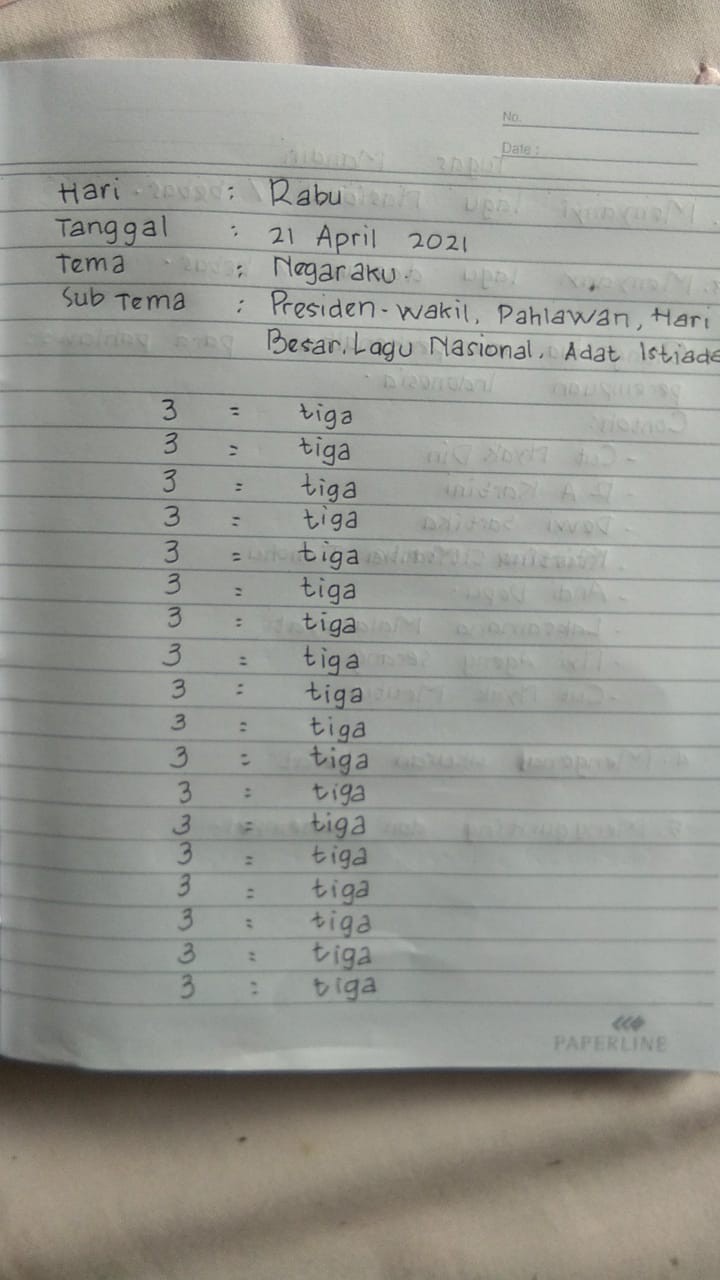 No.
Date :
Hari : Rabu
Tanggal : 21 April 2021
Tema : Negaraku.
Sub Tema : Presiden - Wakil, Pahlawan, Hari
Besar, Lagu Nasional, Adat Istiada
3 = tiga
3 = tiga
3 = tiga
3 = tiga
3 = tiga
3 = tiga
3 = tiga
3 = tiga
3 = tiga
3 = tiga
3 = tiga
3 = tiga
3 = tiga
3 = tiga
3 = tiga
3 = tiga
3 = tiga
3 = tiga
PAPERLINE